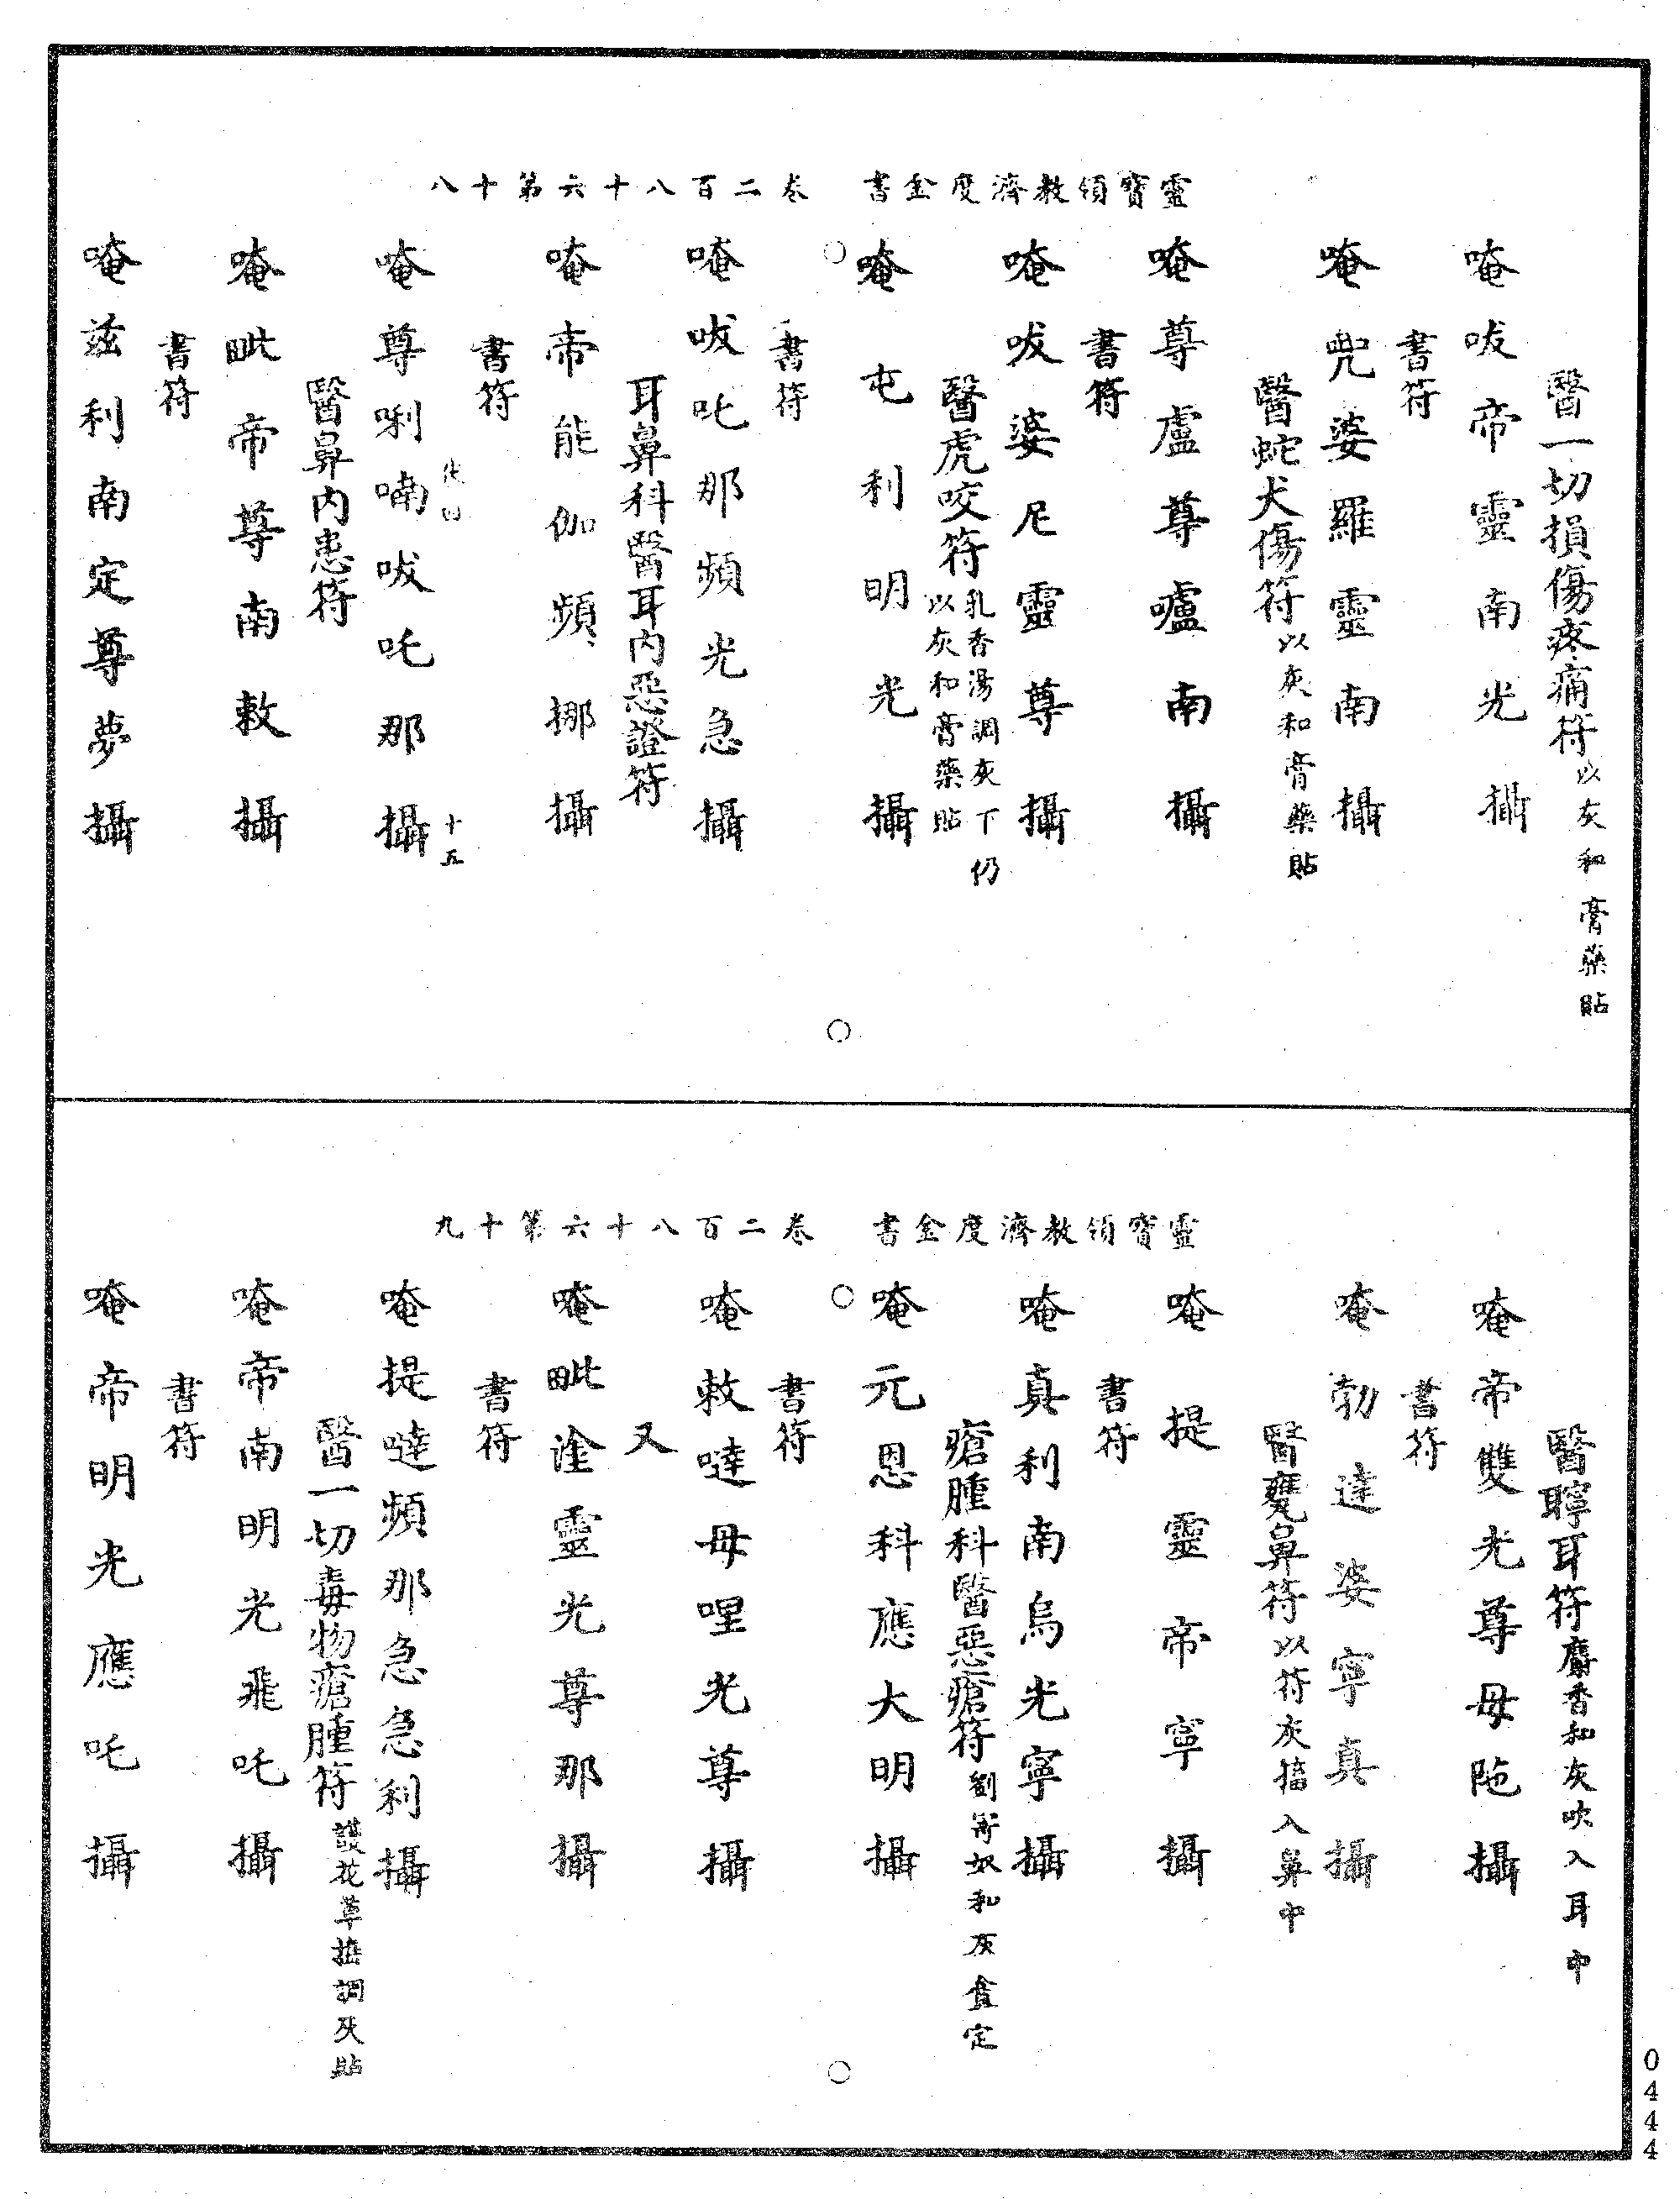 靈寶領教濟度金書　卷二百八十六第十八
醫一切損傷疼痛符以灰和膏藥貼
唵呅帝靈南光攝
書符
唵兜婆羅靈南攝
醫蛇犬傷符以灰和膏藥貼
唵尊盧尊嚧南攝
書符
唵呅婆尼靈尊攝
醫虎咬符乳香湯調灰下仍以灰和膏藥貼
唵屯利明光攝
書符
唵呅吒那頻光急攝
耳鼻科醫耳内惡證符
唵帝能伽頻挪攝
書符
十五
唵尊唎喃呅吒那攝
醫鼻内患符
唵毗帝尊南敕攝
書符
唵茲利南定尊夢攝
靈寶領教濟度金書　卷二百八十六第十九
醫聤耳符麝香和灰吹入耳中
唵帝雙光尊母陁攝
書符
唵勃達婆寧真攝
醫齆鼻符以符灰搐入鼻中
唵提靈帝寧攝
書符
唵真利南烏光寧攝
瘡腫科醫惡瘡符劉寄奴和灰貪定
唵元恩科應大明攝
書符
唵敕噠母哩光尊攝
又
唵毗淦靈光尊那攝
書符
唵提噠頻那急急利攝
醫一切毒物瘡腫符護花草搥調灰貼
唵帝南明光飛吒攝
書符
唵帝明光應吒攝
0444